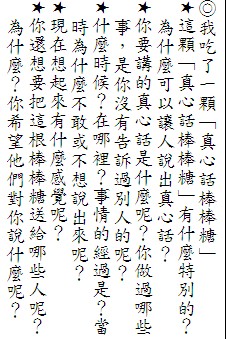 ◎我吃了一顆「真心話棒棒糖」
★這顆「真心話棒棒糖」有什麼特別的？
為什麼可以讓人說出真心話？
★你要講的真心話是什麼呢？你做過哪些
事，是你沒有告訴過別人的呢？
★什麼時候？在哪裡？事情的經過是？當
時為什麼不敢或不想說出來呢？
★現在想起來有什麼感覺呢？
★你還想要把這根棒棒糖送給哪些人呢？
為什麼？你希望他們對你說什麼呢？